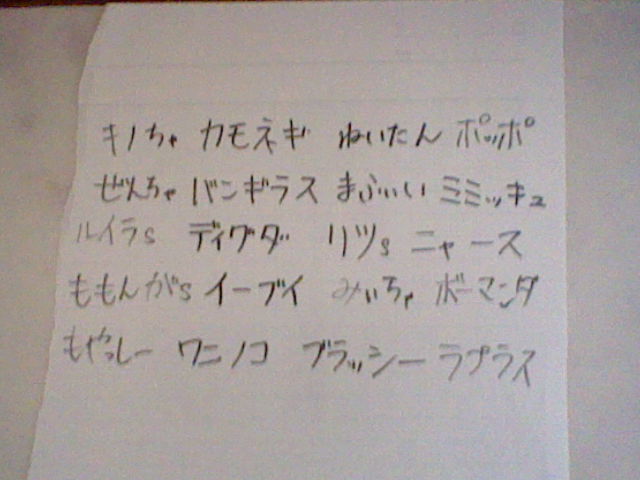 キノちゃ カモネギ ねいたん ポッポ
ぜんちゃ バンギラス まふぃい ミミッキュ
ルイラs ディグダ リツs ニャース
ももんがs イーブイ みぃちゃ ボーマンダ
もやっしー ワニノコ ブラッシー ラプラス